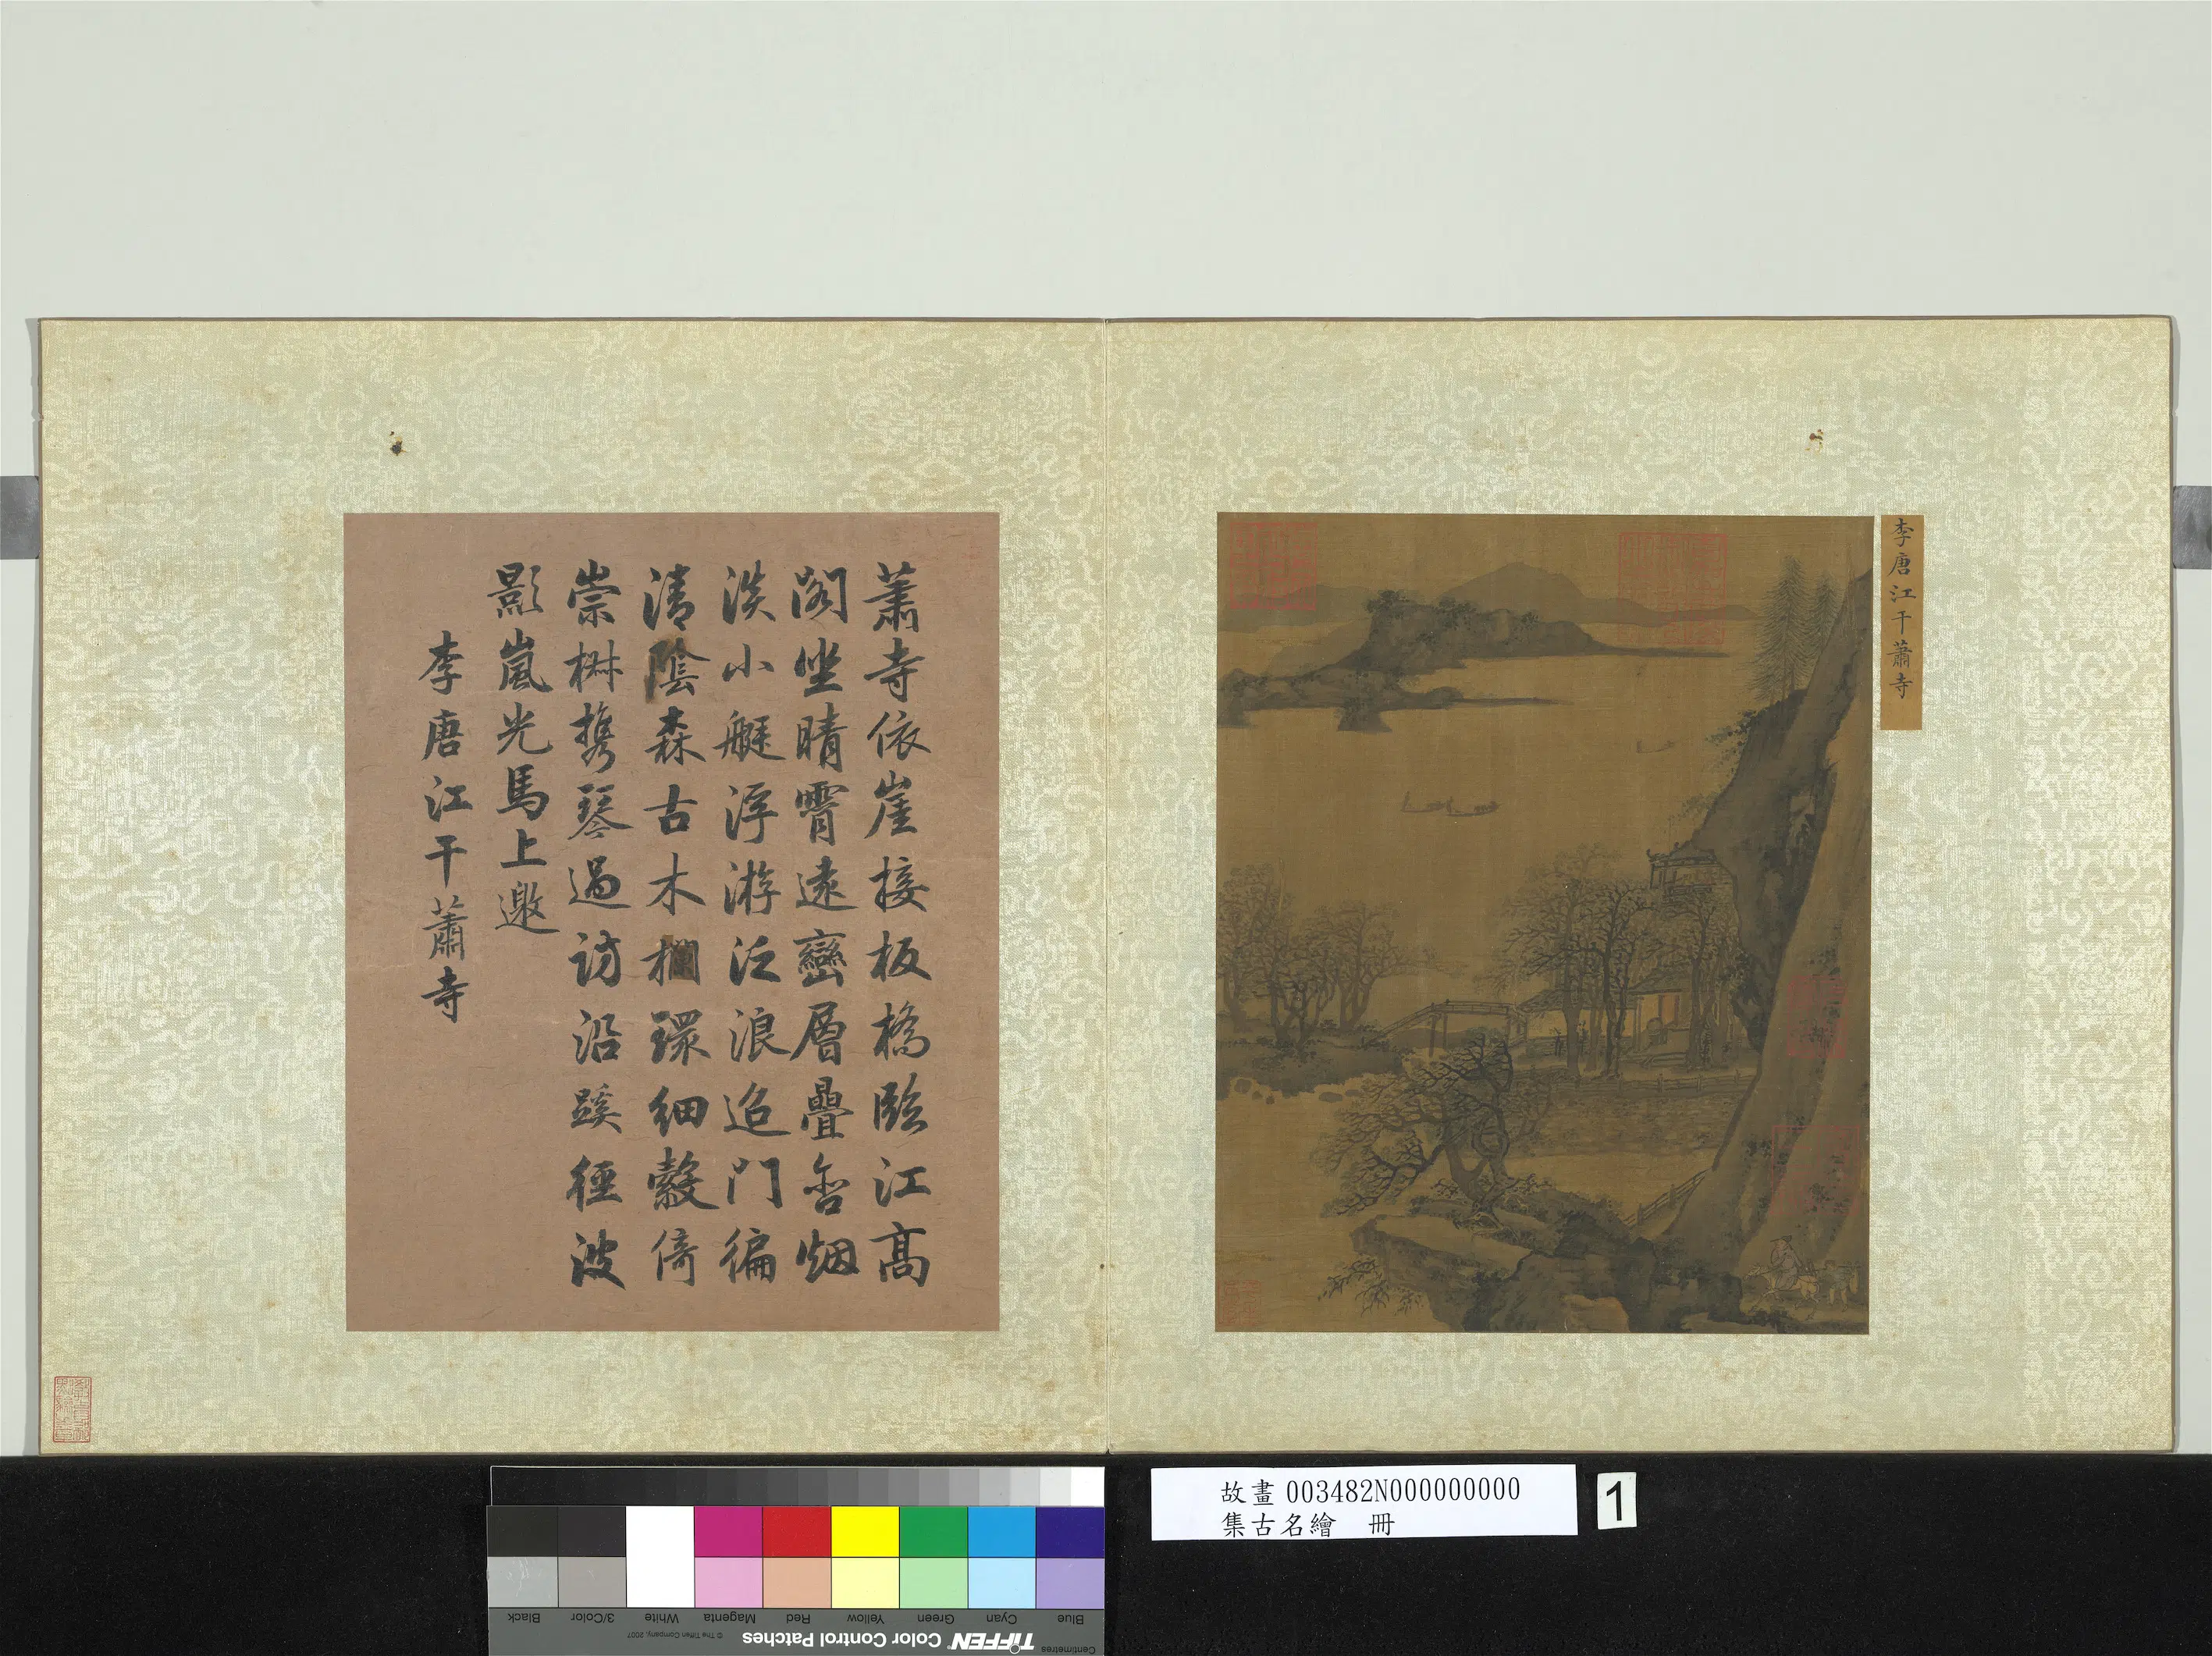 李唐江干蕭寺
蕭寺依崖接板橋臨江高
閣坐晴霄遠巒層疊含烟
淡小艇浮游泛浪迢門徧
清陰森古木欄環細㲄倚
崇椒携琴過訪沿蹊徑波
影嵐光馬上邀
李唐江干蕭寺
故畫003482N000000000
集古名繪 冊
1
Black
3/Color
White
Magenta
Red
Yellow
Green
Cyan
Blue
© The Tiffen Company, 2007
TIFFEN Color Control Patches
Centimetres